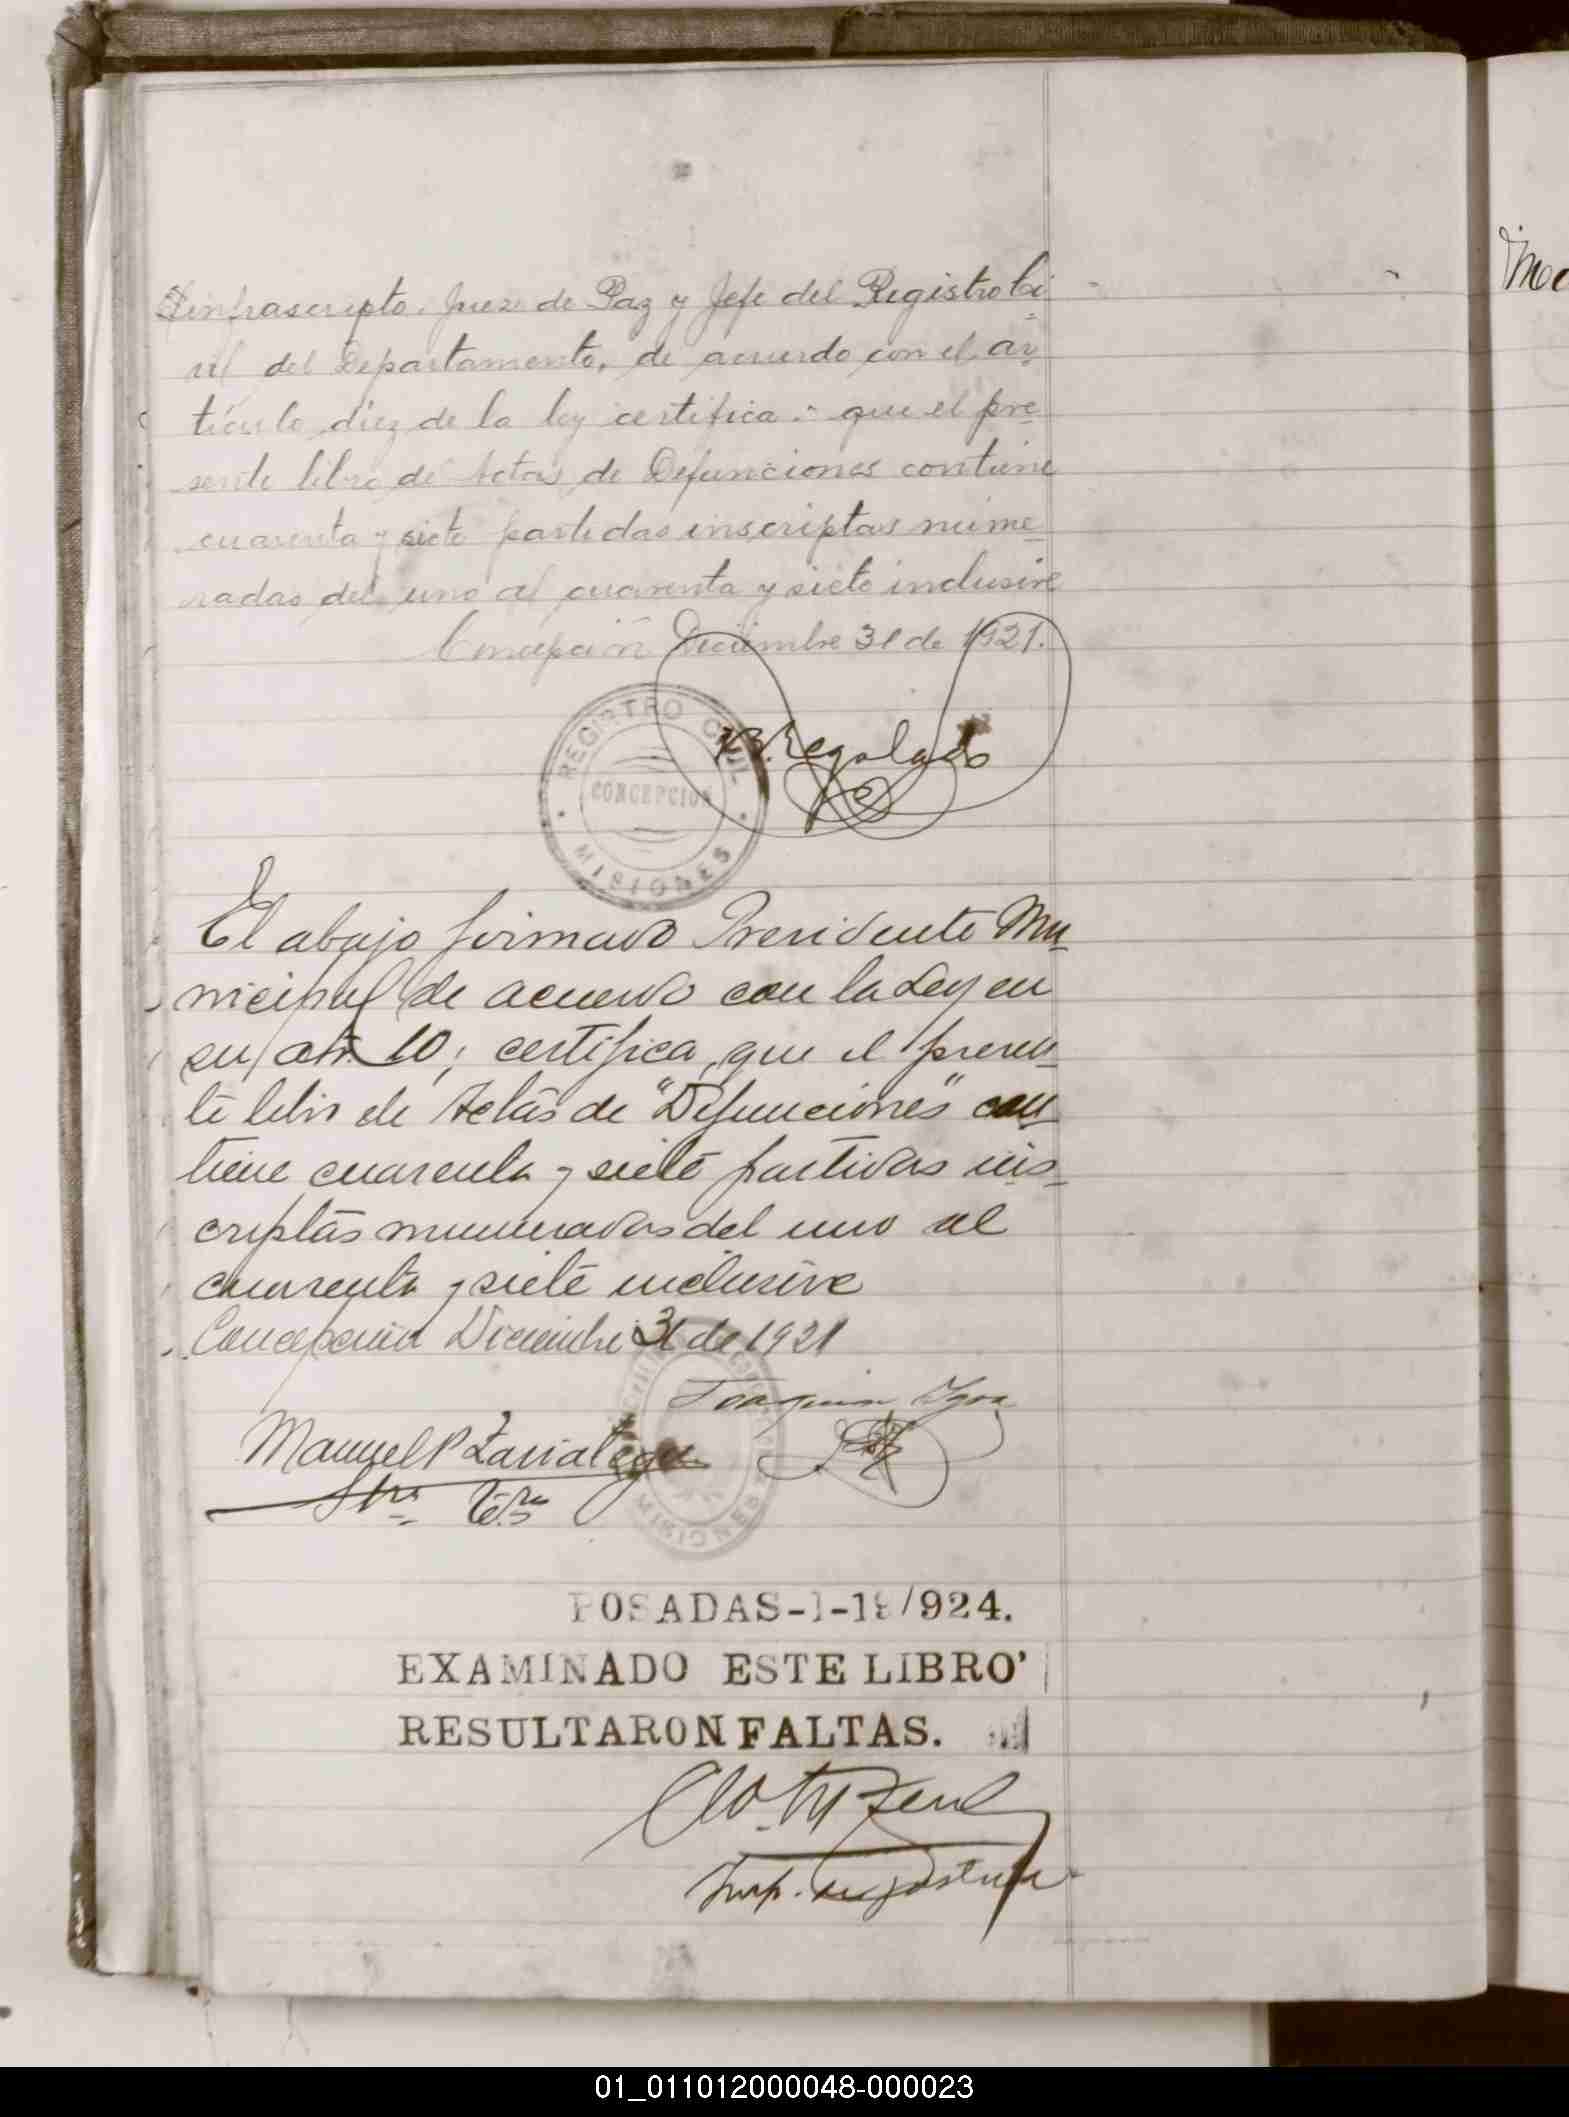 El infrascripto Juez de Paz y Jefe del Registro Ci
vil del Departamento, de acuerdo con el ar
tículo diez de la ley certifica: que el pre
sente libro de Actas de Defunciones contiene
cuarenta y siete partidas inscriptas nume
radas del uno al cuarenta y siete inclusive
Concepción Diciembre 31 de 1921.
REGISTRO CIVIL
CONCEPCION
MISIONES
Regalado
El abajo firmado Presidente Mu
nicipal de acuerdo con la Ley en
su art. 10; certifica, que el presen
te libro de Actas de "Defunciones" con
tiene cuarenta y siete partidas ins
criptas numeradas del uno al
cuarenta y siete inclusive
Concepción Diciembre 31 de 1921
Joaquin
Manuel P Zariategu
Strio
MISIONES
POSADAS-1-19/924.
EXAMINADO ESTE LIBRO
RESULTARON FALTAS.
Insp.
01_011012000048-000023